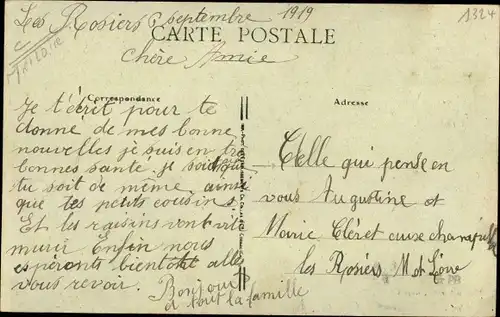 Les Rosiers 6 septembre 1919
1324
CARTE POSTALE
chère Amie
Correspondance
Adresse
Je t'écrit pour te
donné de mes bonne
nouvelles je suis en tre
bonnes santé je soit que
tu soit de même ainsie
que tes petits cousins
Et les raisins vont vite
murir Enfin nous
espéronts bientôt allé
vous revoir. Bonjour
a tout la famille
Celle qui pense en
vous Augustine et
Marie Cléret
les Rosiers M et Loire